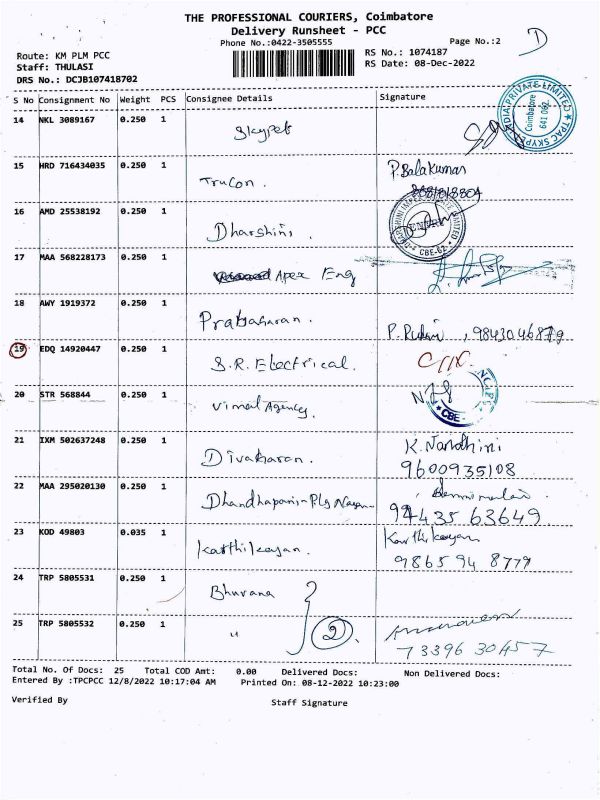 THE PROFESSIONAL COURIERS, Coimbatore
Delivery Runsheet - PCC
Phone No.:0422-3505555
Page No.:2
Route: KM PLM PCC
Staff: THULASI
DRS No.: DCJB107418702
RS No.: 1074187
RS Date: 08-Dec-2022
S No Consignment No Weight PCS Consignee Details Signature
14 NKL 3089167 0.250 1 Skypet
Coimbatore
15 HRD 716434035 0.250 1 Trucon. P. Balakumar
16 AMD 25538192 0.250 1 Dharshini.
CBE-62
17 MAA 568228173 0.250 1 Apex Eng
18 AWY 1919372 0.250 1 Prabaharan. 9843046879
19 EDQ 14920447 0.250 1 S.R. Electrical.
20 STR 568844 0.250 1 Vimal Agency.
CBE
21 IXM 502637248 0.250 1 Divakaran. K. Nandhini
9600935108
22 MAA 295020130 0.250 1 Dhandhapani
94435 63649
23 KOD 49803 0.035 1 Karthikeyan. Karthikeyan
98659 48779
24 TRP 5805531 0.250 1 Bhuvana
25 TRP 5805532 0.250 1 " 2
73396 30457
Total No. Of Docs: 25 Total COD Amt: 0.00 Delivered Docs: Non Delivered Docs:
Entered By :TPCPCC 12/8/2022 10:17:04 AM Printed On: 08-12-2022 10:23:00
Verified By Staff Signature